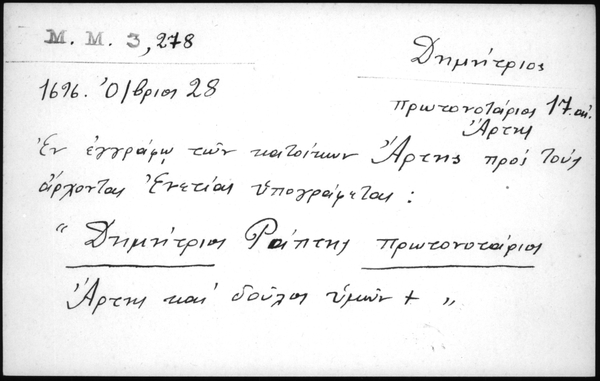 Μ. Μ. 3, 278
Δημήτριος
1696. Ὀ/βριος 28
πρωτονοτάριος 17 αἰ.
Ἄρτης
Ἐν ἐγγράφῳ τῶν κατοίκων Ἄρτης πρός τούς
ἄρχοντας Ἐνετίας ὑπογράφεται :
“ Δημήτριος Ράπτης πρωτονοτάριος
Ἄρτης καί δοῦλος ὑμῶν + „